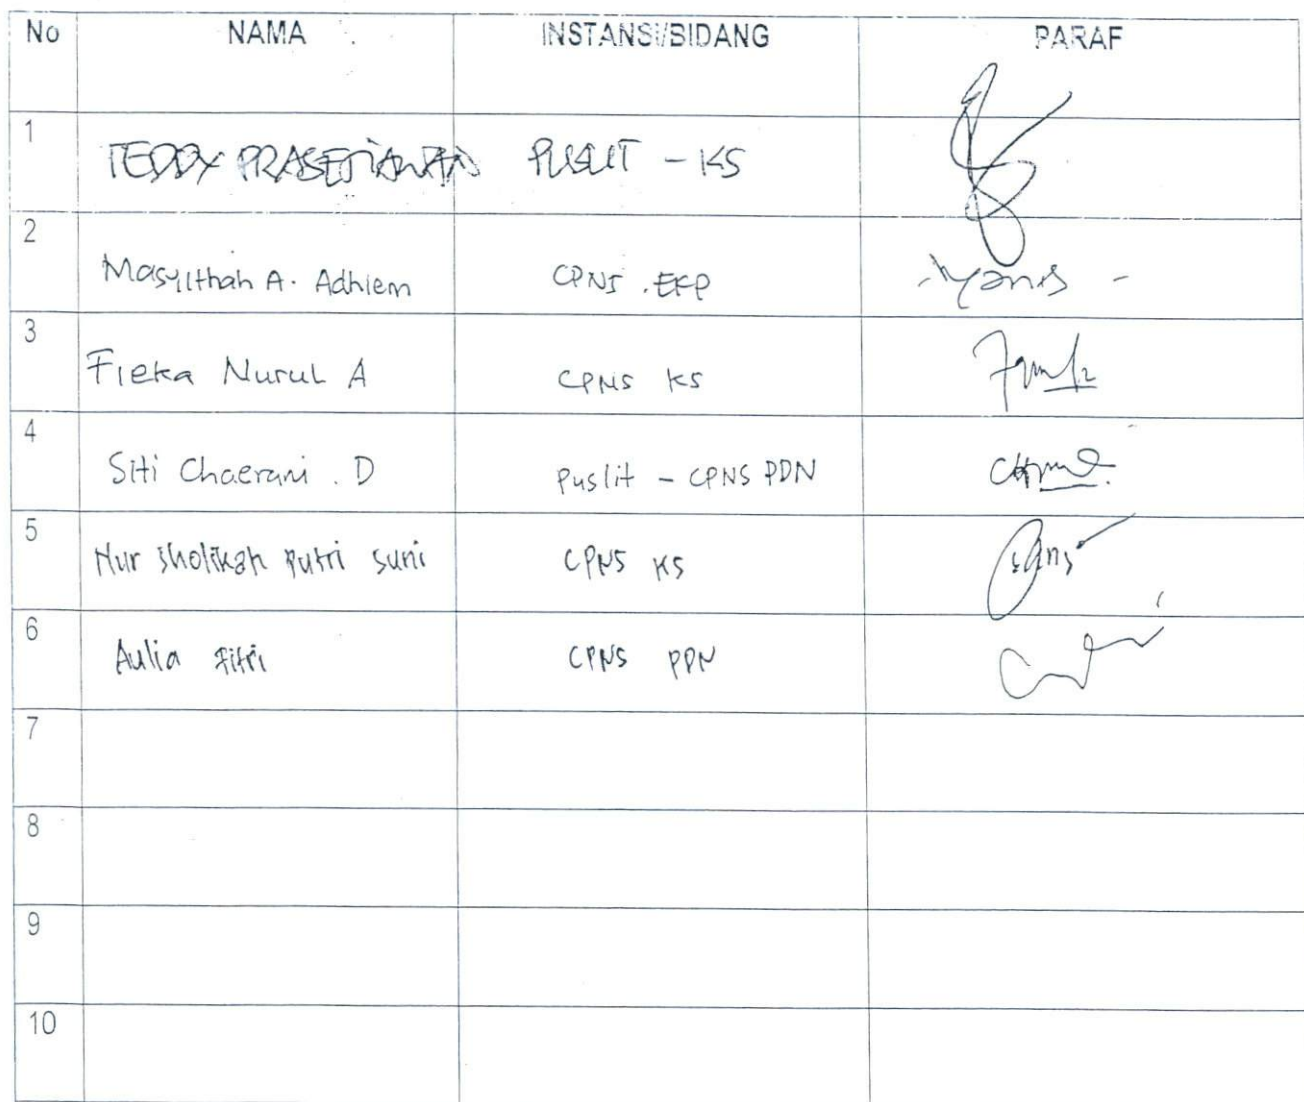 No NAMA INSTANSI/BIDANG PARAF
1 TEDDY PRASETIAWAN PUSLIT - KS
2 Masyithah A. Adhiem CPNS . EKP
3 Fieka Nurul A CPNS KS
4 Siti Chaerani . D Puslit - CPNS PDN
5 Nur sholikah putri suni CPNS KS
6 Aulia Fitri CPNS PPN
7
8
9
10